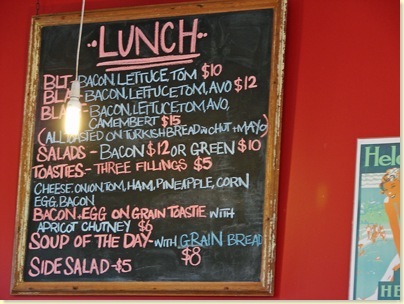 LUNCH
BLT - BACON, LETTUCE, TOM $10
BLA - BACON, LETTUCE, TOM, AVO $12
BACON, LETTUCE, TOM, AVO,
CAMEMBERT $15
(ALL TOASTED ON TURKISH BREAD W CHUT + MAYO)
SALADS - BACON $12 OR GREEN $10
TOASTIES - THREE FILLINGS $5
CHEESE, ONION, TOM, HAM, PINEAPPLE, CORN
EGG, BACON
BACON + EGG ON GRAIN TOASTIE WITH
APRICOT CHUTNEY $6
SOUP OF THE DAY - WITH GRAIN BREAD
$8
SIDE SALAD - $5
HE